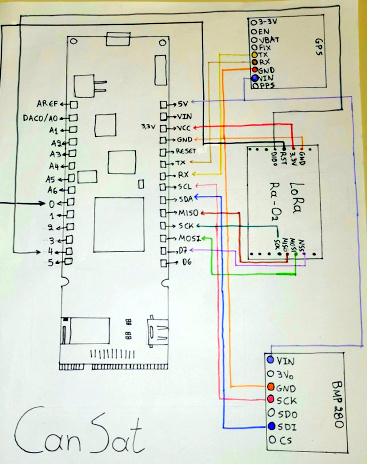 3-3V
EN
VBAT
FIX
TX
RX
GND
VIN
PPS
GPS
AREF
DAC0/A0
A1
A2
A3
A4
A5
A6
0
1
2
3
4
5
5V
VIN
3,3V VCC
GND
RESET
TX
RX
SCL
SDA
MISO
SCK
MOSI
D7
D6
DIO0
RST
3,3V
GND
LoRa
Ra-02
SCK
MISO
MOSI
NSS
VIN
3V0
GND
SCK
SDO
SDI
CS
BMP280
CanSat